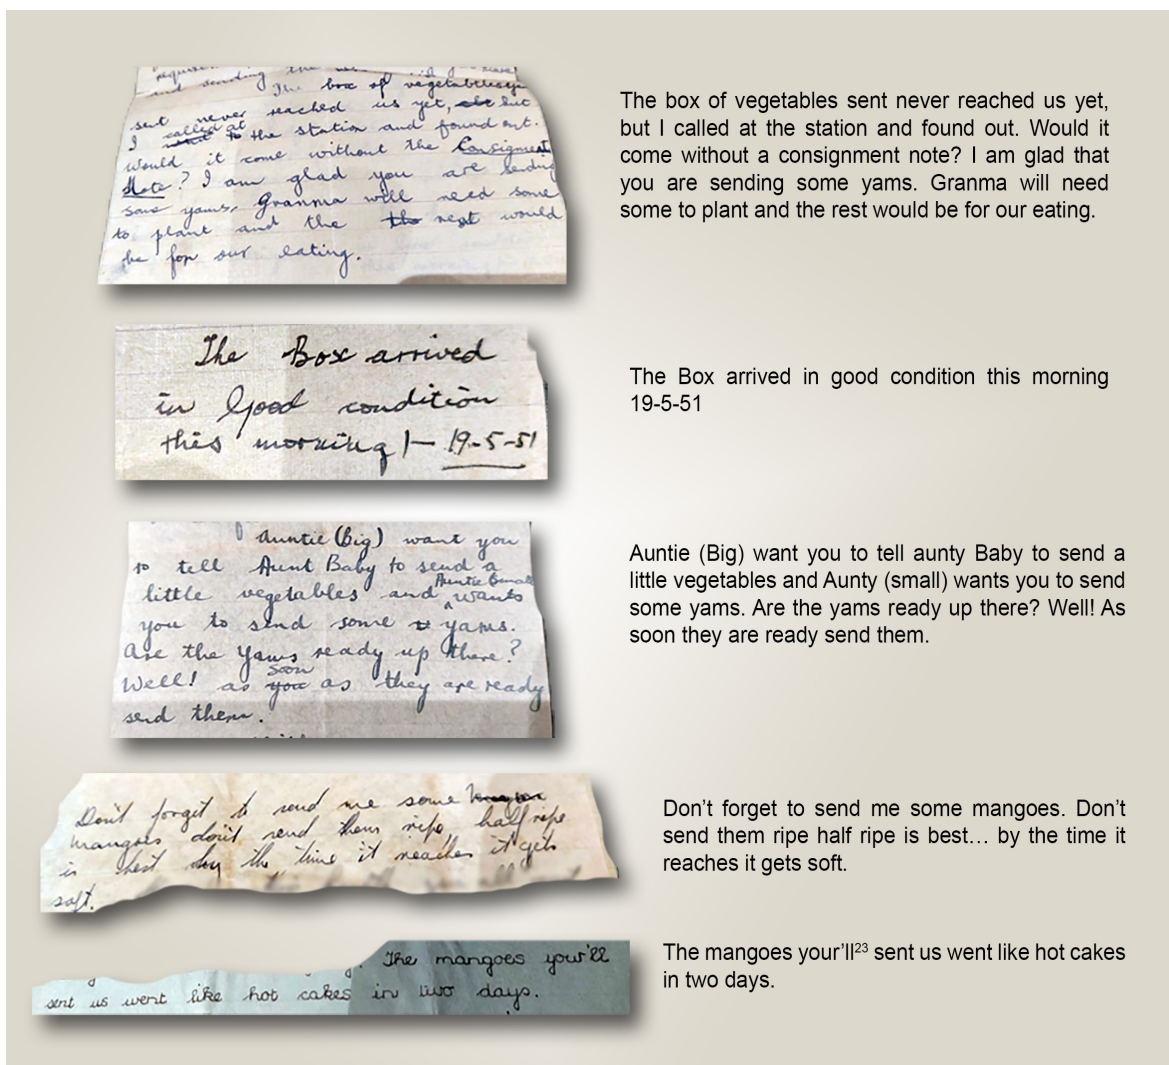 and sending the
The box of vegetables
sent never reached us yet, but
I called at the station and found out.
would it come without the Consignment
Note? I am glad you are sending
some yams. Granma will need some
to plant and the the rest would
be for our eating.
The box of vegetables sent never reached us yet,
but I called at the station and found out. Would it
come without a consignment note? I am glad that
you are sending some yams. Granma will need
some to plant and the rest would be for our eating.
The Box arrived
in Good condition
this morning 19-5-51
The Box arrived in good condition this morning
19-5-51
Auntie (Big) want you
to tell Aunt Baby to send a
little vegetables and Auntie Small wants
you to send some yams.
Are the Yams ready up there?
Well! as soon as they are ready
send them.
Auntie (Big) want you to tell aunty Baby to send a
little vegetables and Aunty (small) wants you to send
some yams. Are the yams ready up there? Well! As
soon they are ready send them.
Don't forget to send me some
mangoes don't send them ripe, half ripe
is best by the time it reaches it gets
soft.
Don’t forget to send me some mangoes. Don’t
send them ripe half ripe is best… by the time it
reaches it gets soft.
The mangoes your'll
sent us went like hot cakes in two days.
The mangoes your’ll23 sent us went like hot cakes
in two days.